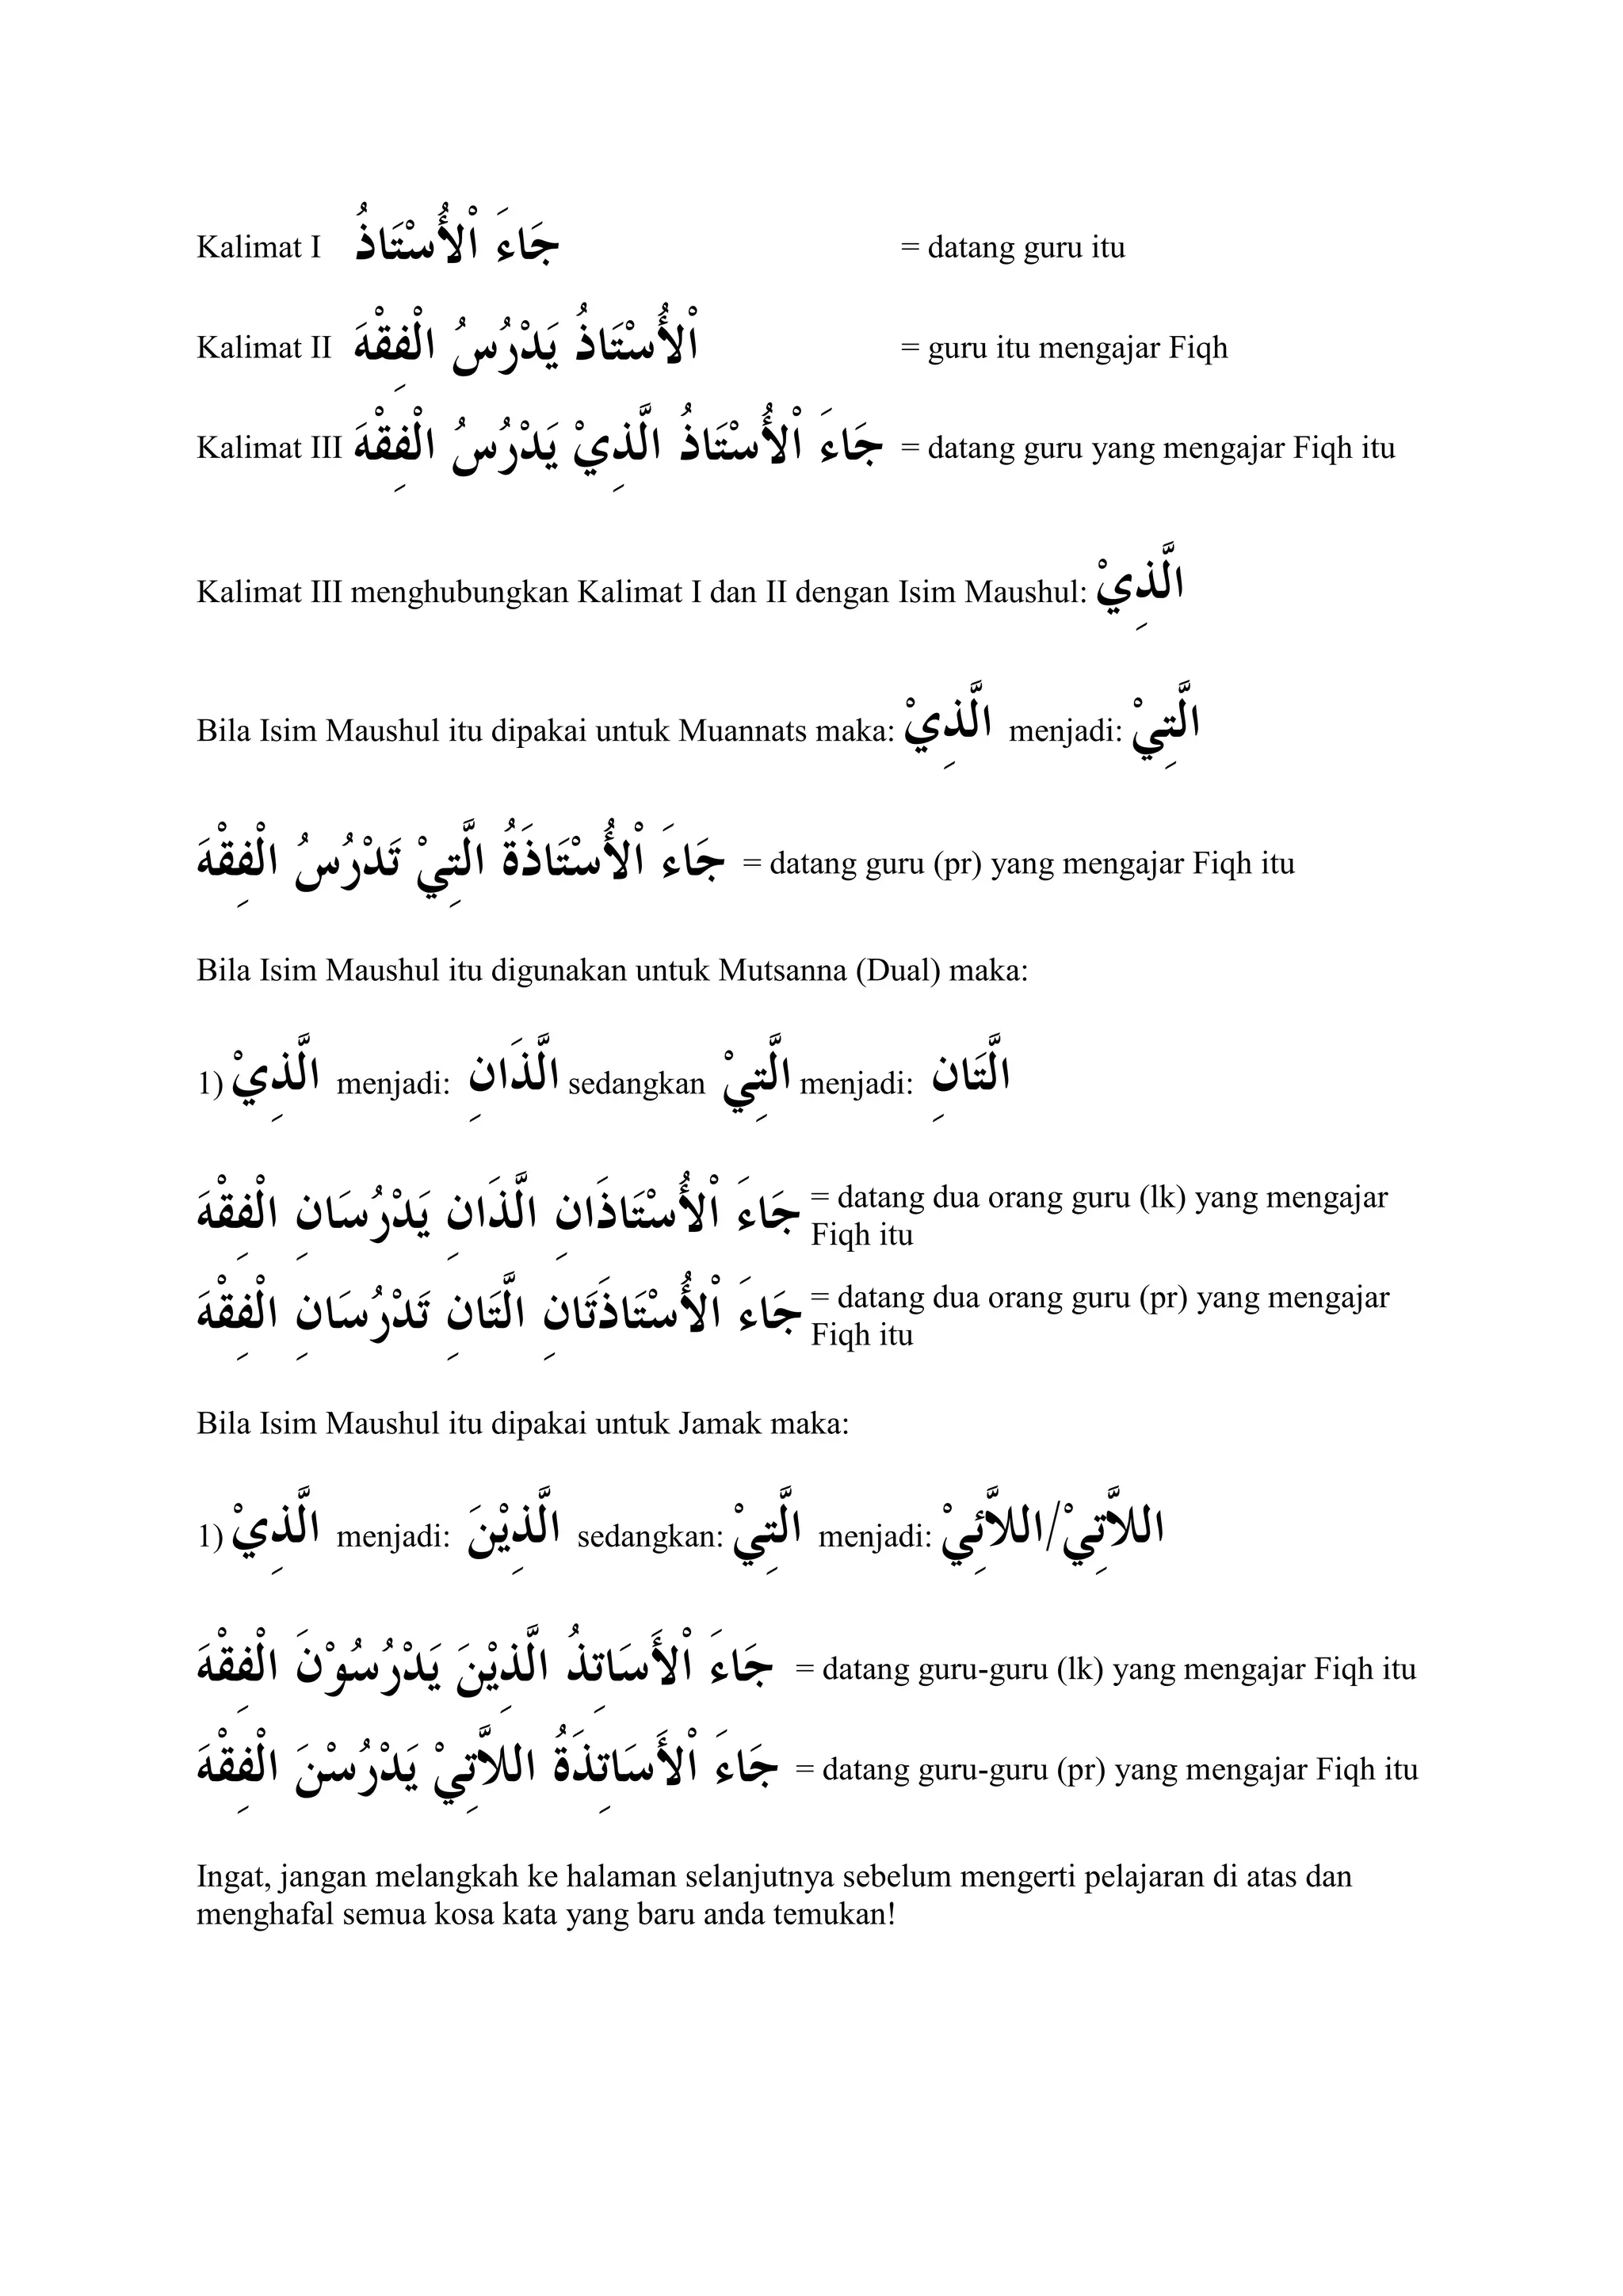 Kalimat I جَاءَ اْلأُسْتَاذُ = datang guru itu
Kalimat II اْلأُسْتَاذُ يَدْرُسُ الْفِقْهَ = guru itu mengajar Fiqh
Kalimat III جَاءَ اْلأُسْتَاذُ الَّذِيْ يَدْرُسُ الْفِقْهَ = datang guru yang mengajar Fiqh itu
Kalimat III menghubungkan Kalimat I dan II dengan Isim Maushul: الَّذِيْ
Bila Isim Maushul itu dipakai untuk Muannats maka: الَّذِيْ menjadi: الَّتِيْ
جَاءَ اْلأُسْتَاذَةُ الَّتِيْ تَدْرُسُ الْفِقْهَ = datang guru (pr) yang mengajar Fiqh itu
Bila Isim Maushul itu digunakan untuk Mutsanna (Dual) maka:
1) الَّذِيْ menjadi: الَّذَانِ sedangkan الَّتِيْ menjadi: الَّتَانِ
جَاءَ اْلأُسْتَاذَانِ الَّذَانِ يَدْرُسَانِ الْفِقْهَ = datang dua orang guru (lk) yang mengajar
Fiqh itu
جَاءَ اْلأُسْتَاذَتَانِ الَّتَانِ تَدْرُسَانِ الْفِقْهَ = datang dua orang guru (pr) yang mengajar
Fiqh itu
Bila Isim Maushul itu dipakai untuk Jamak maka:
1) الَّذِيْ menjadi: الَّذِيْنَ sedangkan: الَّتِيْ menjadi: اللاَّتِيْ/اللاَّئِيْ
جَاءَ اْلأَسَاتِذُ الَّذِيْنَ يَدْرُسُوْنَ الْفِقْهَ = datang guru-guru (lk) yang mengajar Fiqh itu
جَاءَ اْلأَسَاتِذَةُ اللاَّتِيْ يَدْرُسْنَ الْفِقْهَ = datang guru-guru (pr) yang mengajar Fiqh itu
Ingat, jangan melangkah ke halaman selanjutnya sebelum mengerti pelajaran di atas dan
menghafal semua kosa kata yang baru anda temukan!